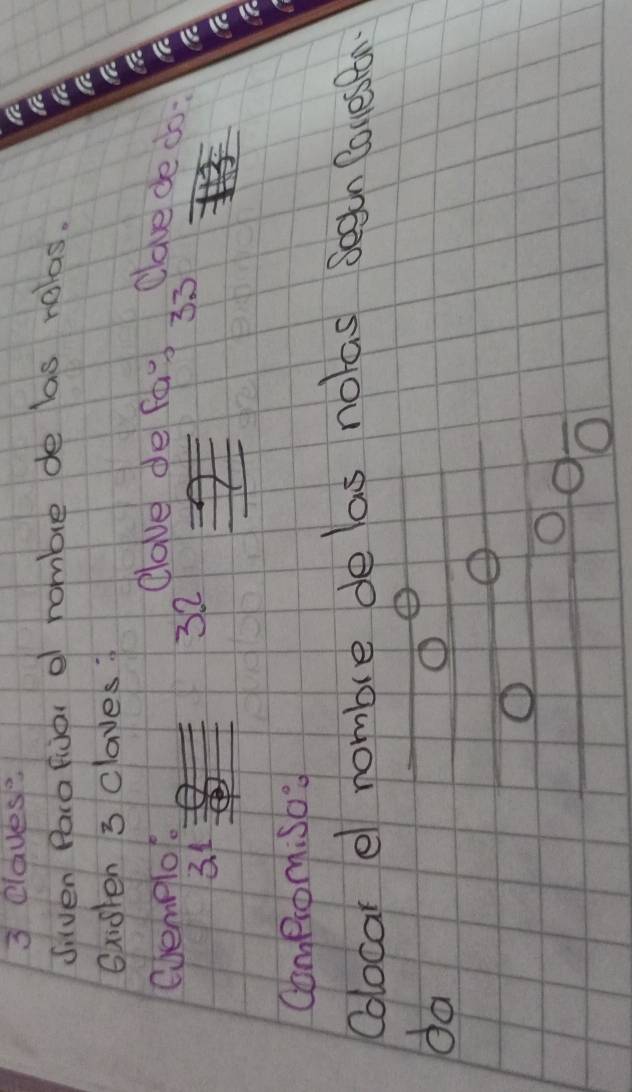 3 claves:
Sirven Para fijar el nombre de las notas.
Existen 3 Claves:
Ejemplo: Clave de fa: Clave de do:
3.1 3.2 3.3
Compromiso:
Colocar el nombre de las notas Segun Correspon-
da